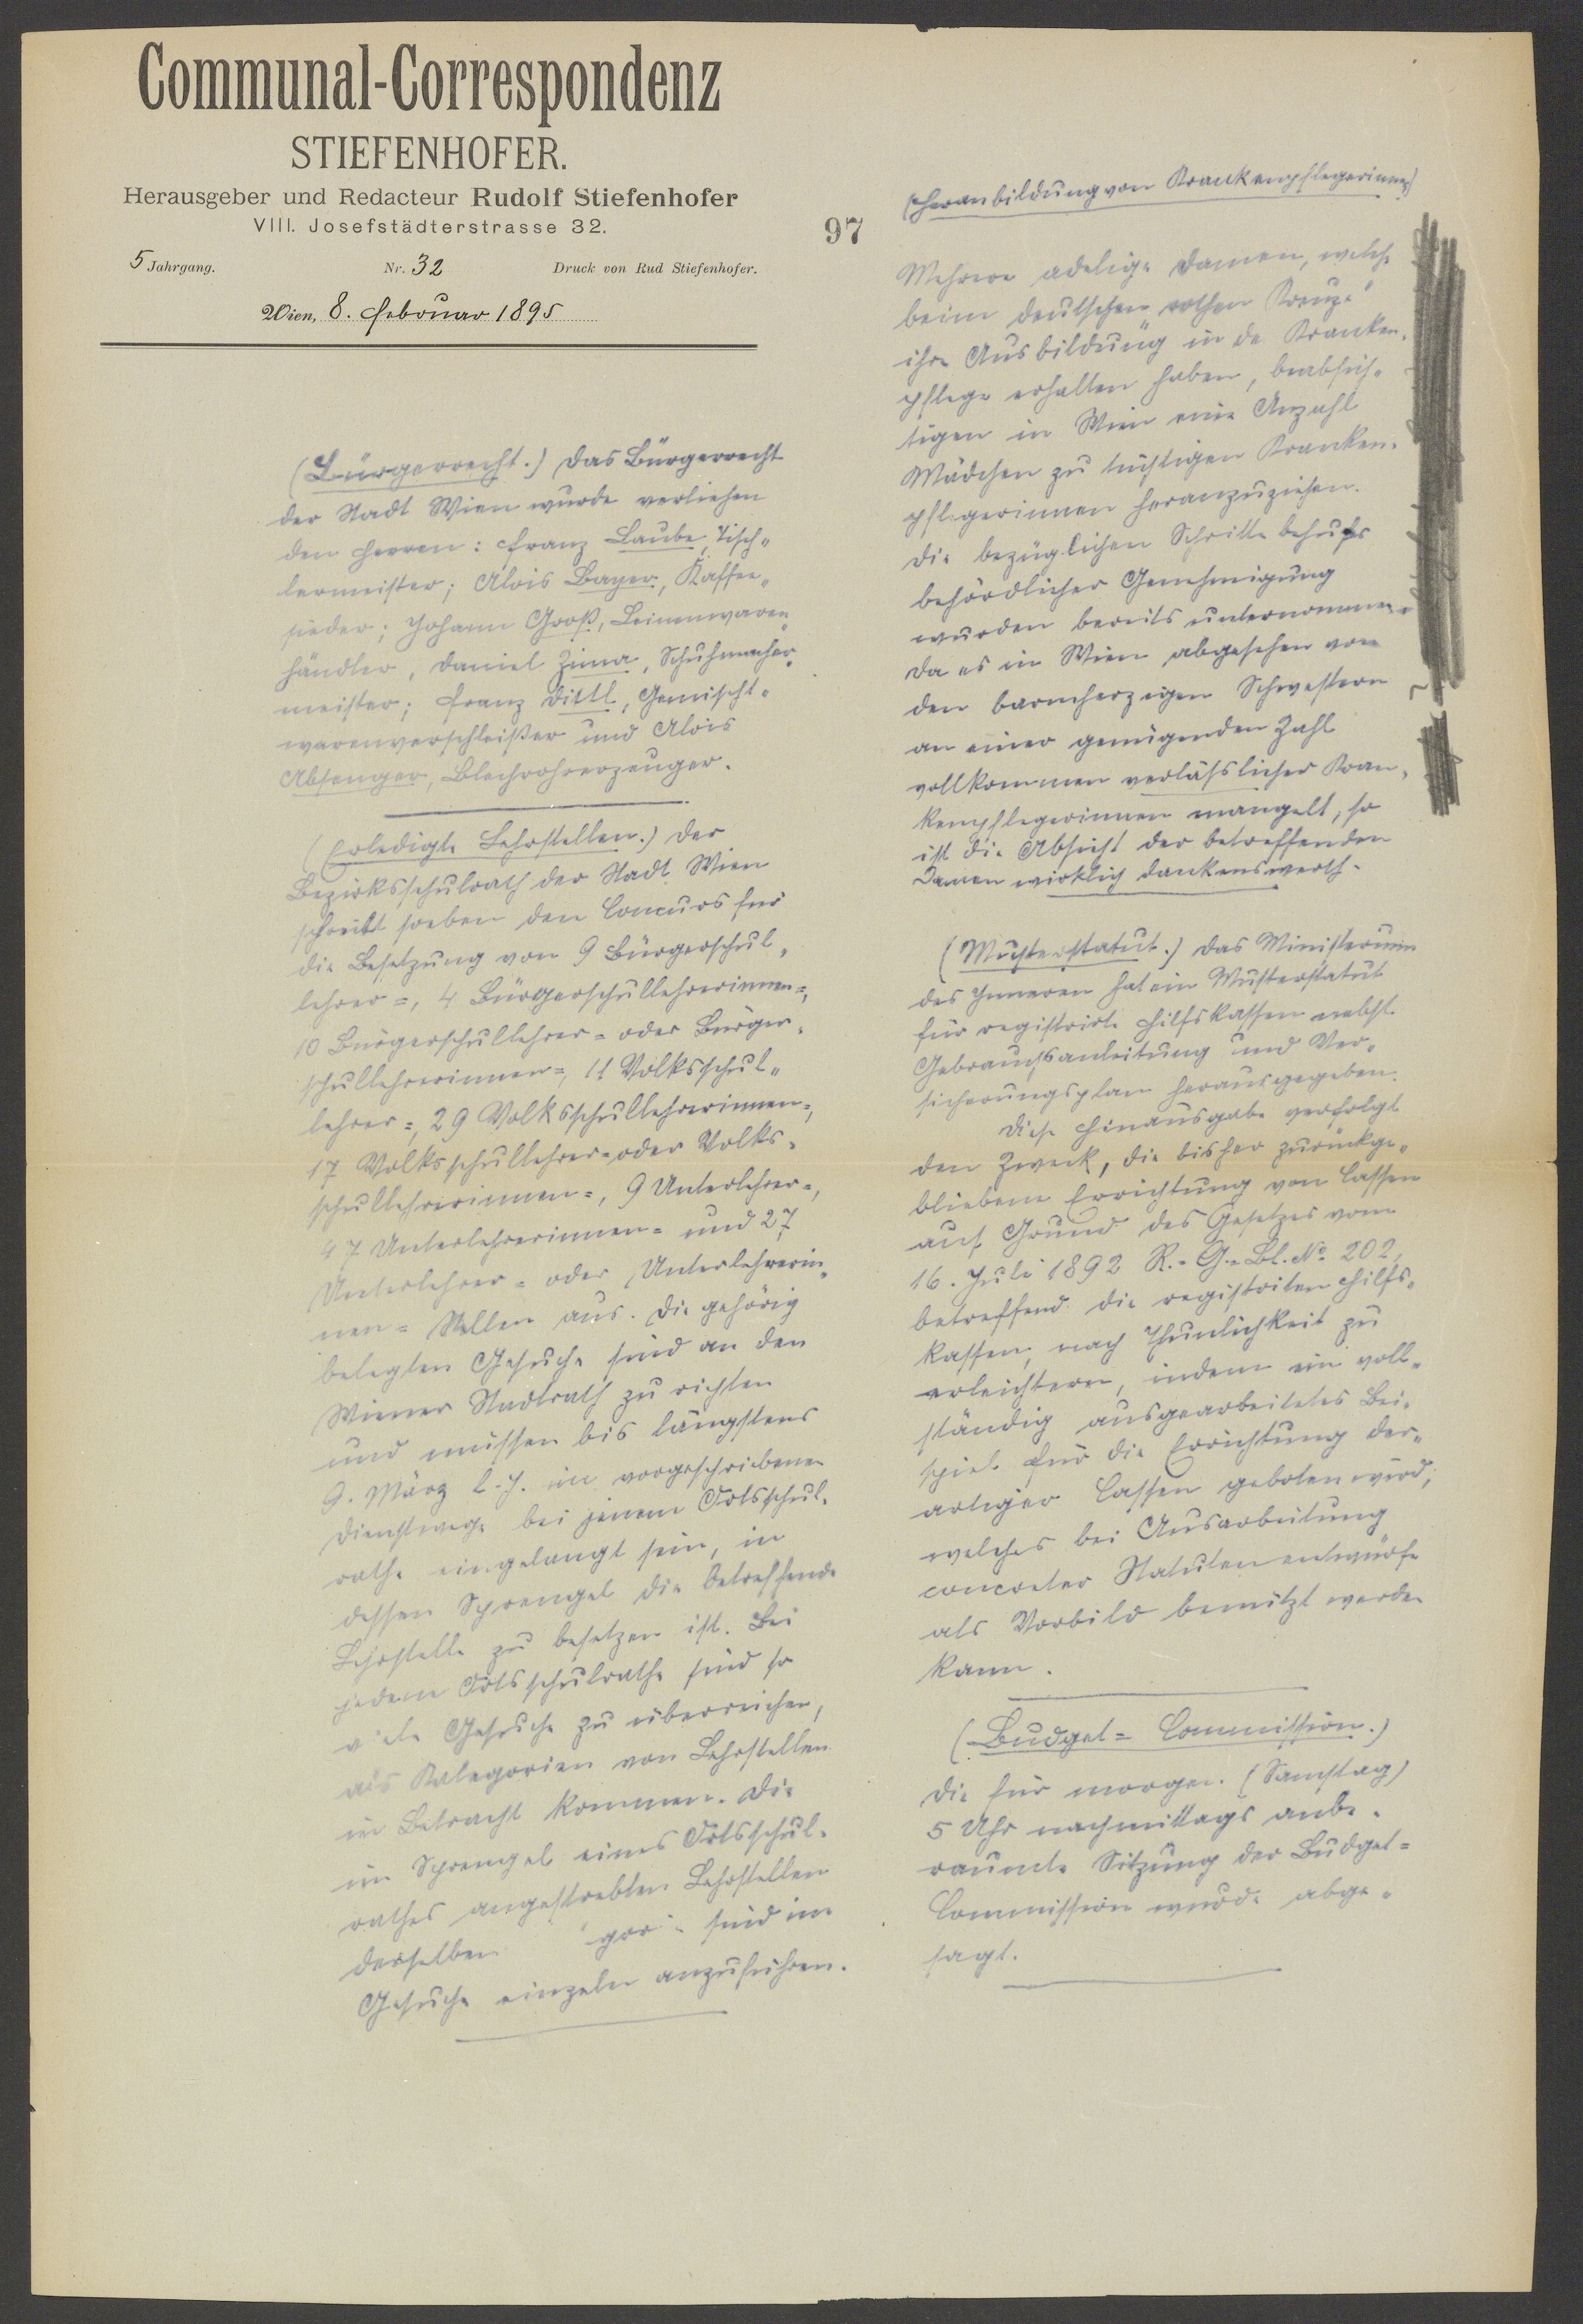 Communal-Correspondenz
STIEFENHOFER.
Herausgeber und Redacteur Rudolf Stiefenhofer
VIII. Josefstädterstrasse 32.
5 Jahrgang. Nr. 32 Druck von Rud Stiefenhofer.
Wien, 8. Februar 1895
97
(Bürgerrecht.) Das Bürgerrecht
der Stadt Wien wurde verliehen
den Herren: Franz Laube, Tisch-
lermeister; Alois Bayer, Kaffee-
sieder; Johann Groß, Leinenwaren-
händler, Daniel Zima, Schuhmacher-
meister; Franz Dittl, Gemischt-
warenverschleißer und Alois
Absenger, Blechrohrerzeuger.
(Erledigte Lehrstellen.) Der
Bezirksschulrath der Stadt Wien
schreibt soeben den Concurs für
die Besetzung von 9 Bürgerschul-
lehrer=, 4 Bürgerschullehrerinnen=,
10 Bürgerschullehrer= oder Bürger-
schullehrerinnen=, 11 Volksschul-
lehrer=, 29 Volksschullehrerinnen=,
17 Volksschullehrer= oder Volks-
schullehrerinnen=, 9 Unterlehrer=,
47 Unterlehrerinnen= und 27
Unterlehrer= oder Unterlehrerin-
nen= Stellen aus. Die gehörig
belegten Gesuche sind an den
Wiener Stadtrath zu richten
und müssen bis längstens
9. März l. J. im vorgeschriebenen
Dienstwege bei jenem Ortsschul-
rathe eingelangt sein, in
dessen Sprengel die betreffende
Lehrstelle zu besetzen ist. Bei
jedem Ortsschulrathe sind so
viele Gesuche zu überreichen,
als Kategorien von Lehrstellen
in Betracht kommen. Die
im Sprengel eines Ortsschul-
rathes angestrebten Lehrstellen
derselben sind im
Gesuche einzeln anzuführen.
(Heranbildung von Krankenpflegerinnen)
Mehrere adelige Damen, welche
beim deutschen "rothen Kreuze"
ihre Ausbildung in der Kranken-
pflege erhalten haben, beabsich-
tigen in Wien eine Anzahl
Mädchen zu tüchtigen Kranken-
pflegerinnen heranzuziehen.
Die bezüglichen Schritte behufs
behördlicher Genehmigung
wurden bereits unternommen.
Da es in Wien abgesehen von
den barmherzigen Schwestern
an einer genügenden Zahl
vollkommen verläßlicher Kran-
kenpflegerinnen mangelt, so
ist die Absicht der betreffenden
Damen wirklich dankenswerth.
(Musterstatut.) Das Ministerium
des Inneren hat ein Musterstatut
für registrirte Hilfskassen nebst
Gebrauchsanleitung und Ver-
sicherungsplan herausgegeben.
Diese Hinausgabe verfolgt
den Zweck, die bisher zurückge-
bliebene Errichtung von Cassen
auf Grund des Gesetzes vom
16. Juli 1892 R.-G.-Bl. No. 202,
betreffend die registrirten Hilfs-
kassen, nach Thunlichkeit zu
erleichtern, indem ein voll-
ständig ausgearbeitetes Bei-
spiel für die Errichtung der-
artiger Cassen geboten wird,
welches bei Ausarbeitung
concreter Statutenentwürfe
als Vorbild benützt werden
kann.
(Budget= Commission.)
Die für morgen (Samstag)
5 Uhr nachmittags anbe-
raumte Sitzung der Budget=
Commission wurde abge-
sagt.